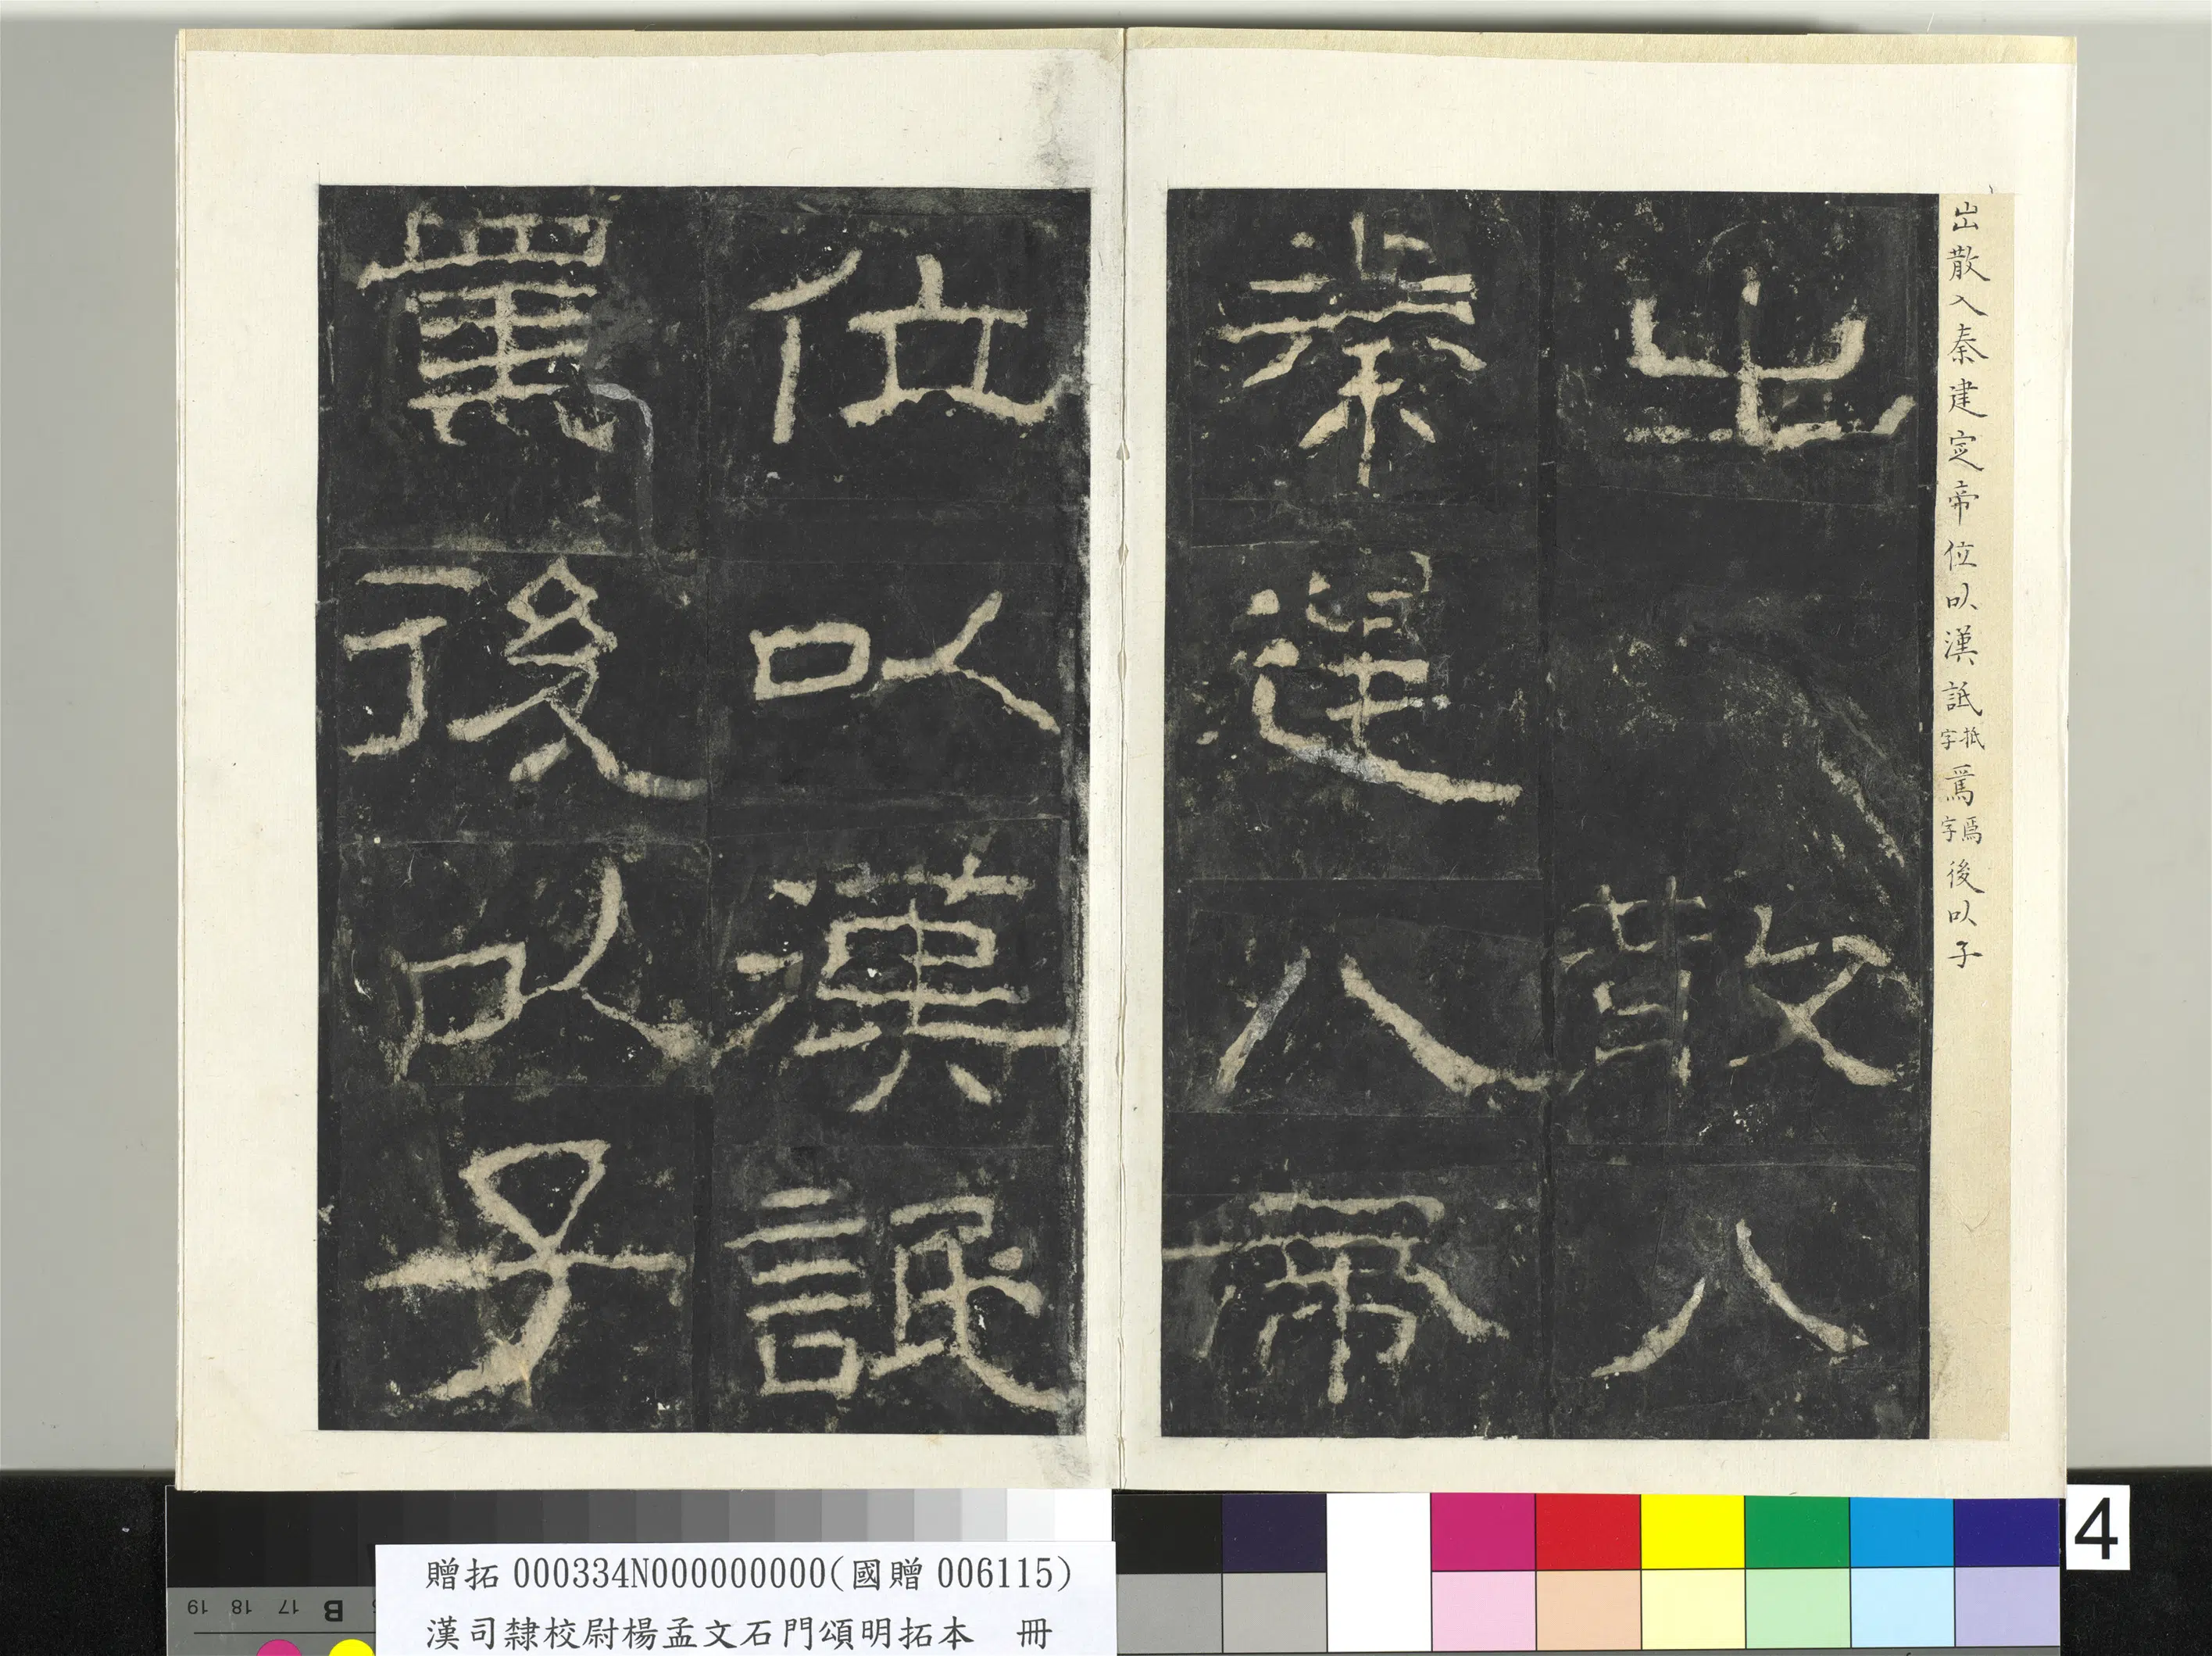 出散入秦建定帝位以漢詆抵字焉焉字後以子
出散入
秦建帝
位以漢詆
焉後以子
4
贈拓 000334N000000000(國贈 006115)
漢司隸校尉楊孟文石門頌明拓本 冊
B 17 18 19